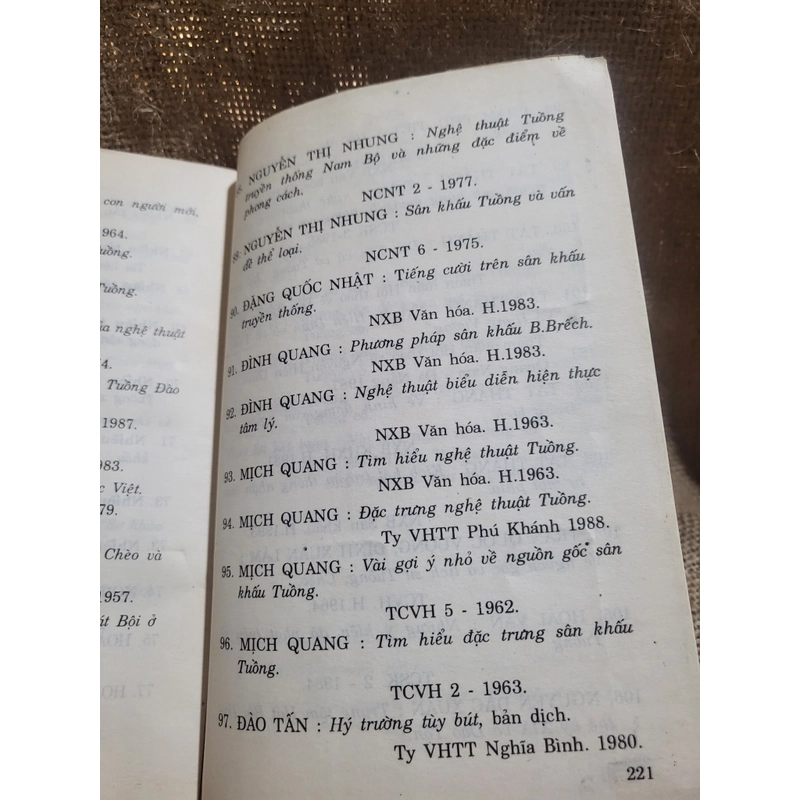 con người mới.
964.
uồng.
Tuồng.
ủa nghệ thuật
4.
Tuồng Đào
1987.
983.
c Việt.
79.
Chèo và
1957.
át Bội ở
8. NGUYỄN THỊ NHUNG : Nghệ thuật Tuồng
truyền thống Nam Bộ và những đặc điểm về
phong cách.
NCNT 2 - 1977.
89. NGUYỄN THỊ NHUNG : Sân khấu Tuồng và vấn
đề thể loại.
NCNT 6 - 1975.
90. ĐẶNG QUỐC NHẬT : Tiếng cười trên sân khấu
truyền thống.
NXB Văn hóa. H.1983.
91. ĐÌNH QUANG : Phương pháp sân khấu B.Brếch.
NXB Văn hóa. H.1983.
92. ĐÌNH QUANG : Nghệ thuật biểu diễn hiện thực
tâm lý.
NXB Văn hóa. H.1963.
93. MỊCH QUANG : Tìm hiểu nghệ thuật Tuồng.
NXB Văn hóa. H.1963.
94. MỊCH QUANG : Đặc trưng nghệ thuật Tuồng.
Ty VHTT Phú Khánh 1988.
95. MỊCH QUANG : Vài gợi ý nhỏ về nguồn gốc sân
khấu Tuồng.
TCVH 5 - 1962.
96. MỊCH QUANG : Tìm hiểu đặc trưng sân khấu
Tuồng.
TCVH 2 - 1963.
97. ĐÀO TẤN : Hý trường tùy bút, bản dịch.
Ty VHTT Nghĩa Bình. 1980.
221